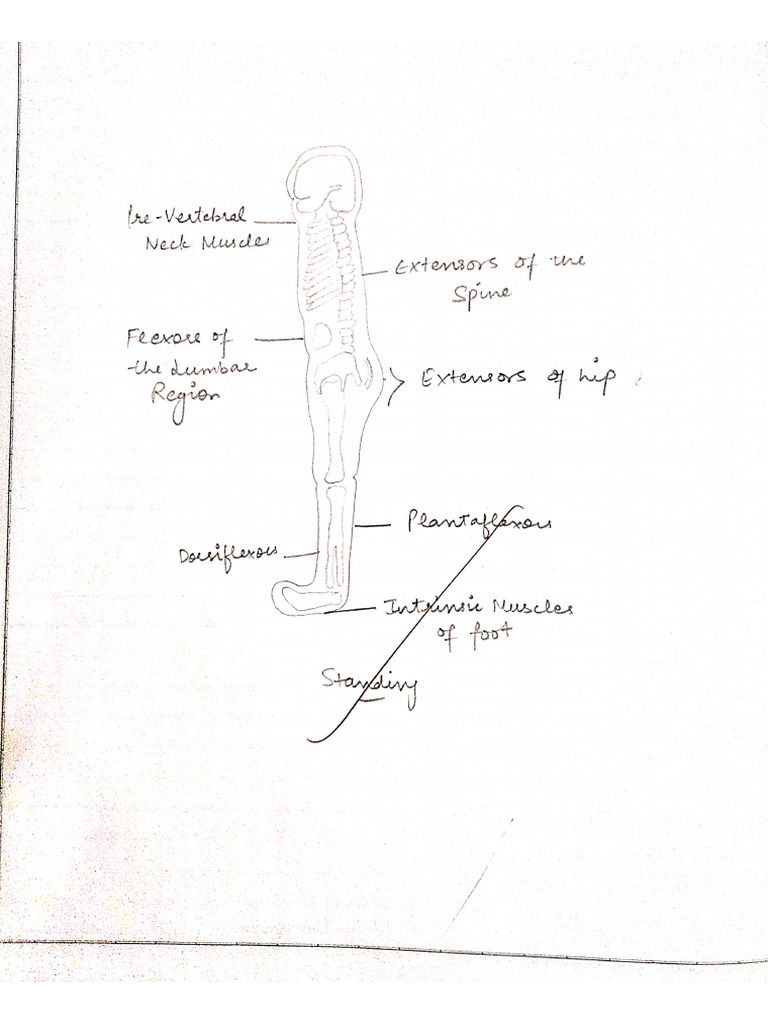 Pre-Vertebral
Neck Muscles
Extensors of the
Spine
Flexors of
the Lumbar
Region
Extensors of hip
Plantaflexors
Dorsiflexors
Intrinsic Muscles
of foot
Standing